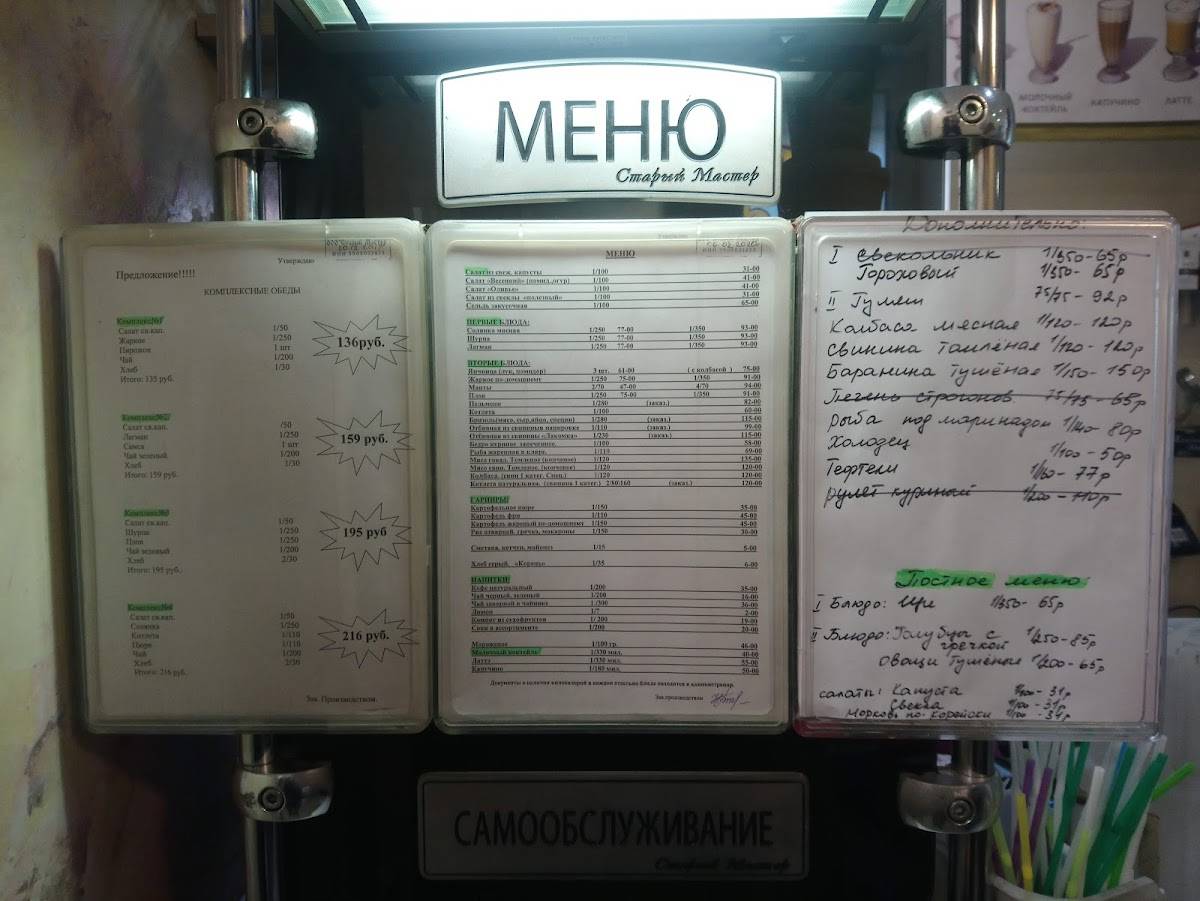 МЕНЮ
Старый Мастер
МОЛОЧНЫЙ КОКТЕЙЛЬ
КАПУЧИНО
ЛАТТЕ
Утверждаю
Предложение!!!!!
КОМПЛЕКСНЫЕ ОБЕДЫ
Комплекс№1
Салат св.кап. 1/50
Жаркое 1/250
Пирожок 1 шт
Чай 1/200
Хлеб 1/30
Итого: 135 руб.
136руб.
Комплекс№2
Салат св.кап. /50
Лагман 1/250
Самса 1 шт
Чай зеленый 1/200
Хлеб 2/30
Итого: 159 руб.
159 руб.
Комплекс№3
Салат св.кап. 1/50
Шурпа 1/250
Плов 1/250
Чай зеленый 1/200
Хлеб 2/30
Итого: 195 руб.
195 руб
Комплекс№4
Салат св.кап. 1/50
Солянка 1/250
Котлета 1/110
Пюре 1/110
Чай 1/200
Хлеб 2/30
Итого: 216 руб.
216 руб.
Зав. Производством.
МЕНЮ
Салат из свеж. капусты 1/100 31-00
Салат «Весенний» (помид.,огур) 1/100 41-00
Салат «Оливье» 1/100 41-00
Салат из свеклы «полезный» 1/100 31-00
Сельдь закусочная 1/100 65-00
ПЕРВЫЕ БЛЮДА:
Солянка мясная 1/250 77-00 1/350 93-00
Шурпа 1/250 77-00 1/350 93-00
Лагман 1/250 77-00 1/350 93-00
ВТОРЫЕ БЛЮДА:
Яичница (лук, помидор) 3 шт. 61-00 ( с колбасой ) 75-00
Жаркое по-домашнему 1/250 75-00 1/350 91-00
Манты 2/70 47-00 4/70 94-00
Плов 1/250 75-00 1/350 91-00
Пельмени 1/280 (заказ.) 82-00
Котлета 1/100 60-00
1/280 (заказ.) 115-00
Отбивная из свинины 1/110 (заказ.) 99-00
Отбивная из свинины «Лакомка» 1/230 (заказ.) 115-00
Бедро куриное запеченное. 1/100 58-00
Рыба жаренная в кляре. 1/110 69-00
Мясо говяд. Томленое (копченое) 1/120 135-00
Мясо свин. Томленое. (копченое) 1/120 120-00
Колбаса. (свин 1 катег. Спец.) 1/120 120-00
Котлета натуральная. (свинина 1 катег.) 2/80/160 (заказ.) 120-00
ГАРНИРЫ:
Картофельное пюре 1/150 35-00
Картофель фри 1/110 45-00
Картофель жареный по-домашнему 1/150 45-00
Рис отварной, гречка, макароны 1/150 30-00
Сметана, кетчуп, майонез 1/15 5-00
Хлеб серый. 1/35 6-00
НАПИТКИ:
Кофе натуральный 1/200 35-00
Чай черный, зеленый 1/200 16-00
Чай заварной в чайнике 1/300 36-00
Лимон 1/7 2-00
Компот из сухофруктов 1/ 200 19-00
Соки в ассортименте 1/200 20-00
Мороженое 1/100 гр. 46-00
Молочный коктейль 1/330 мил. 40-00
Латте 1/330 мил. 55-00
Капучино 1/180 мил. 50-00
Зав.производством
Дополнительно:
I Свекольник 1/350-65р
Гороховый 1/350- 65р
II Гуляш 75/75 - 92р
Колбаса мясная 1/120- 120р
Свинина томлёная 1/120- 120р
Баранина тушёная 1/150- 150р
Печень строганов 75/75- 65р
Рыба под маринадом 1/140- 80р
Холодец 1/100 - 50р
Тефтели 1/160- 77р
рулет куриный 1/200 - 110р
Постное меню:
I Блюдо: Щи 1/350- 65р
II Блюдо: Голубцы с гречкой 1/250-85р
овощи тушёные 1/200-65р
салаты: Капуста 1/100- 31р
Свекла 1/100 - 31р
Морковь по-корейски 1/100 - 34р
САМООБСЛУЖИВАНИЕ
Старый Мастер